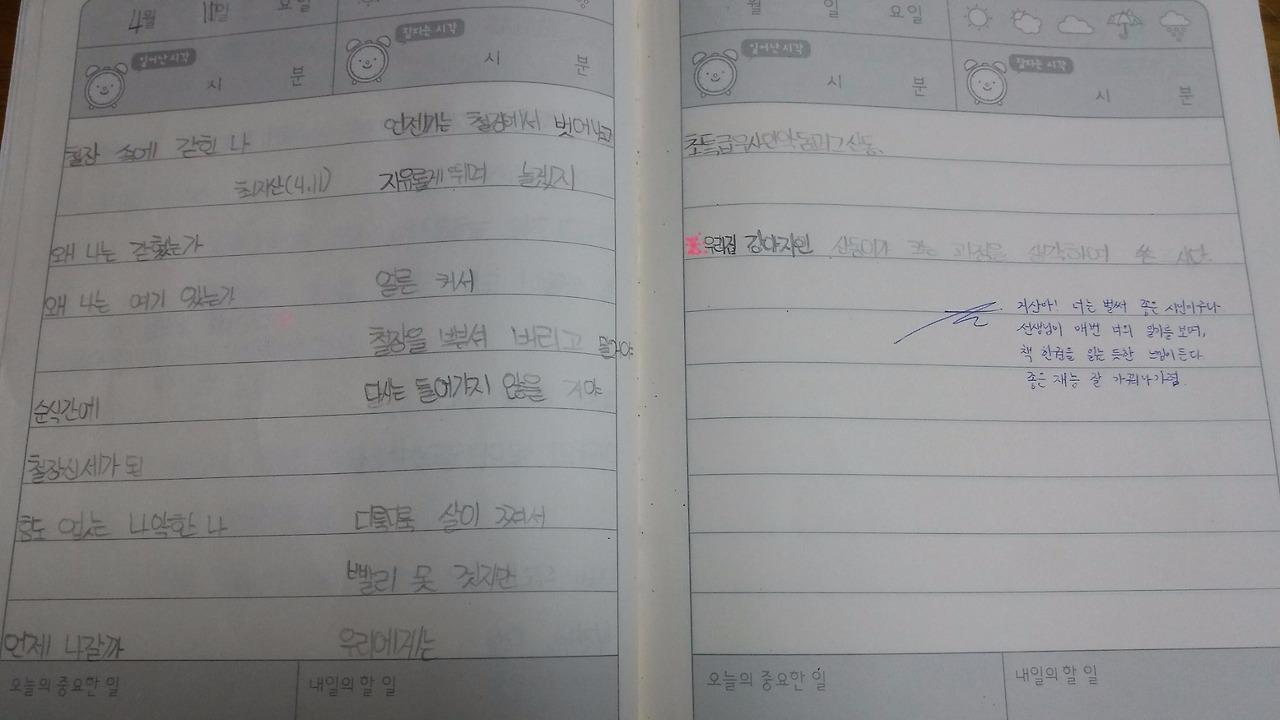 4월 11일 요일
일어난 시각
시 분
잠자는 시각
시 분
철장 속에 갇힌 나
최지산(4.11)
왜 나는 갇혔는가
왜 나는 여기 있는가
순식간에
철장신세가 된
힘도 없는 나약한 나
언제 나갈까
언젠가는 철장에서 벗어나고
자유롭게 뛰며 놀겠지
얼른 커서
철장을 뿌셔 버리고 말거야
다시는 들어가지 않을 거야
디룩디룩 살이 쪄서
빨리 못 걷지만
우리에게는
오늘의 중요한 일
내일의 할 일
월 일 요일
일어난 시각
시 분
잠자는 시각
시 분
초특급
우리집 강아지인 신동이가 크는 과정을 생각하며 쓴 시다.
지산아! 너는 벌써 좋은 시인이구나
선생님이 매번 너의 일기를 보며,
책 한권을 읽는 듯한 느낌이 든다
좋은 재능 잘 가꿔나가렴
오늘의 중요한 일
내일의 할 일